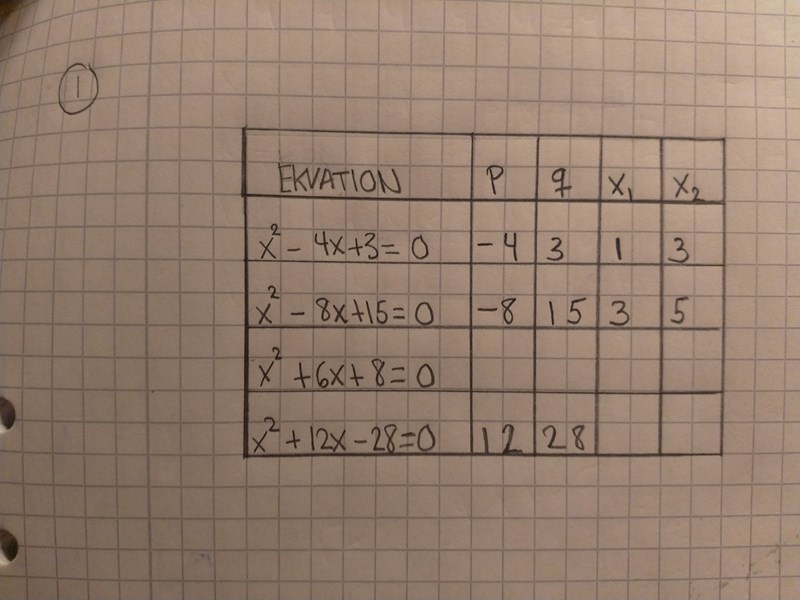 1
EKVATION p q x₁ x₂
x² - 4x+3= 0 -4 3 1 3
x² - 8x+15= 0 -8 15 3 5
x² +6x+8=0
x² + 12x -28=0 12 28